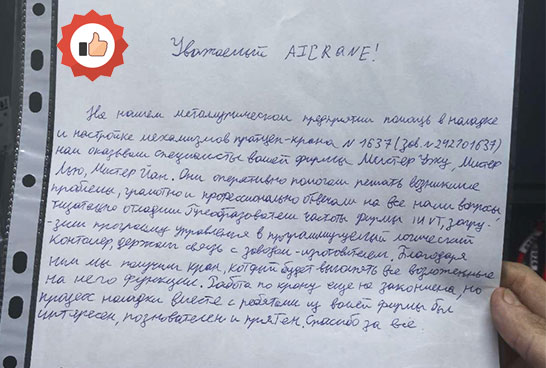 Уважаемый AICRANE!
На нашем металлургическом предприятии помощь в наладке
и настройке механизмов кран № 1637 (зав. № 292101637)
нам оказывали специалисты вашей фирмы Мистер Чжу, Мистер
Лью, Мистер Иан. Они оперативно помогали решать возникшие
проблемы, грамотно и профессионально отвечали на все наши вопросы,
тщательно отладили Преобразователи частоты фирмы INVT, загру-
зили программу управления в программируемый логический
контролер, держали связь с заводом-изготовителем. Благодаря
ним мы получили кран, который будет выполнять все возложенные
на него функции. Работа по крану ещё не закончена, но
процесс наладки вместе с ребятами из вашей фирмы был
интересен, познавателен и приятен. Спасибо за всё.